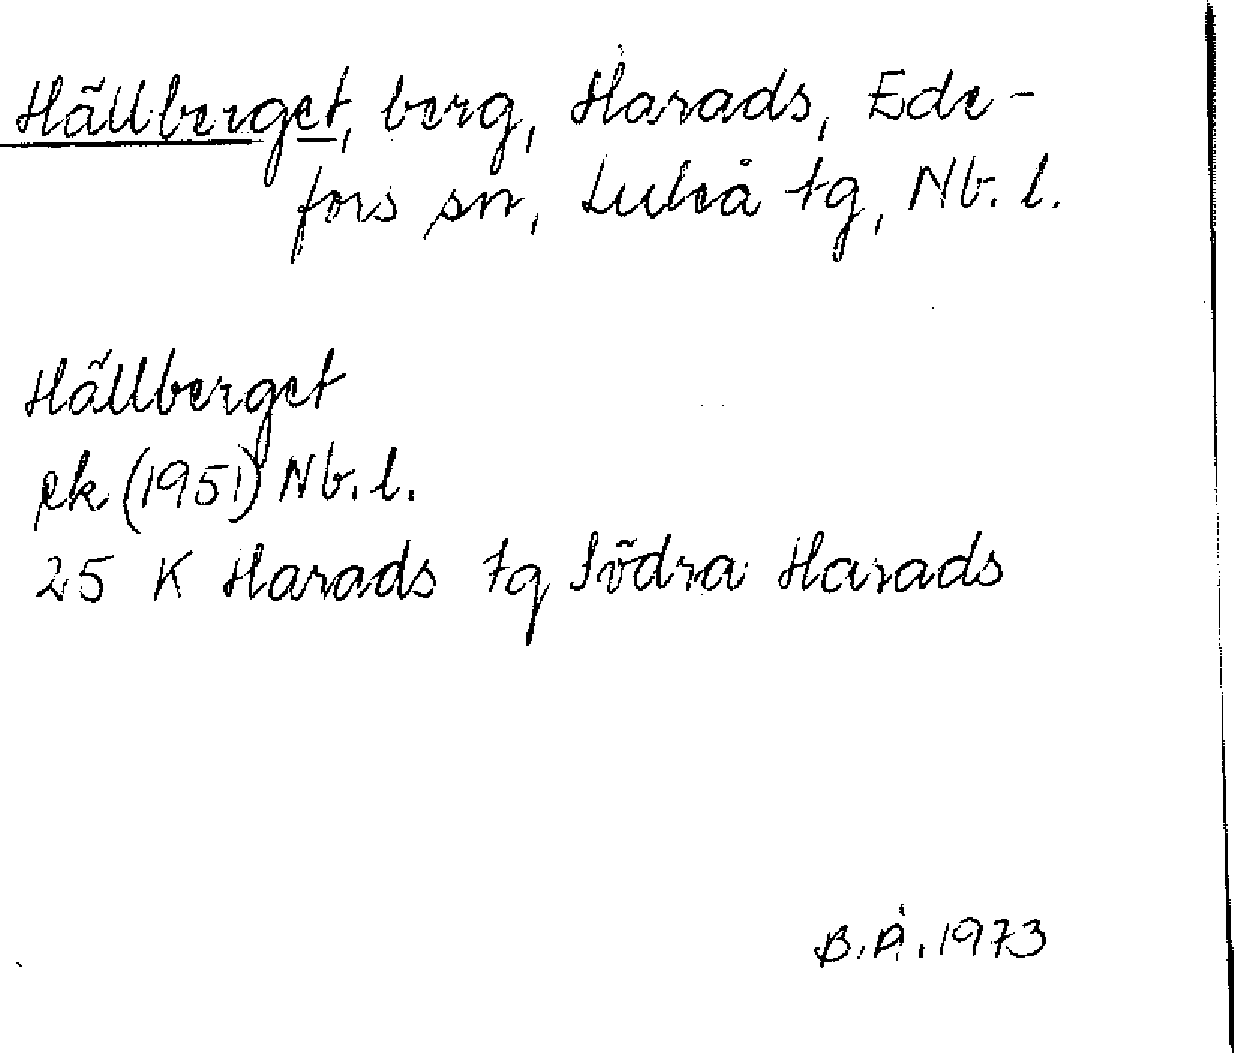 Hällberget, berg, Harads, Ede-
fors sn, Luleå tg, Nb. l.
Hällberget
ek (1951) Nb. l.
25 K Harads tg Södra Harads
B.Å. 1973